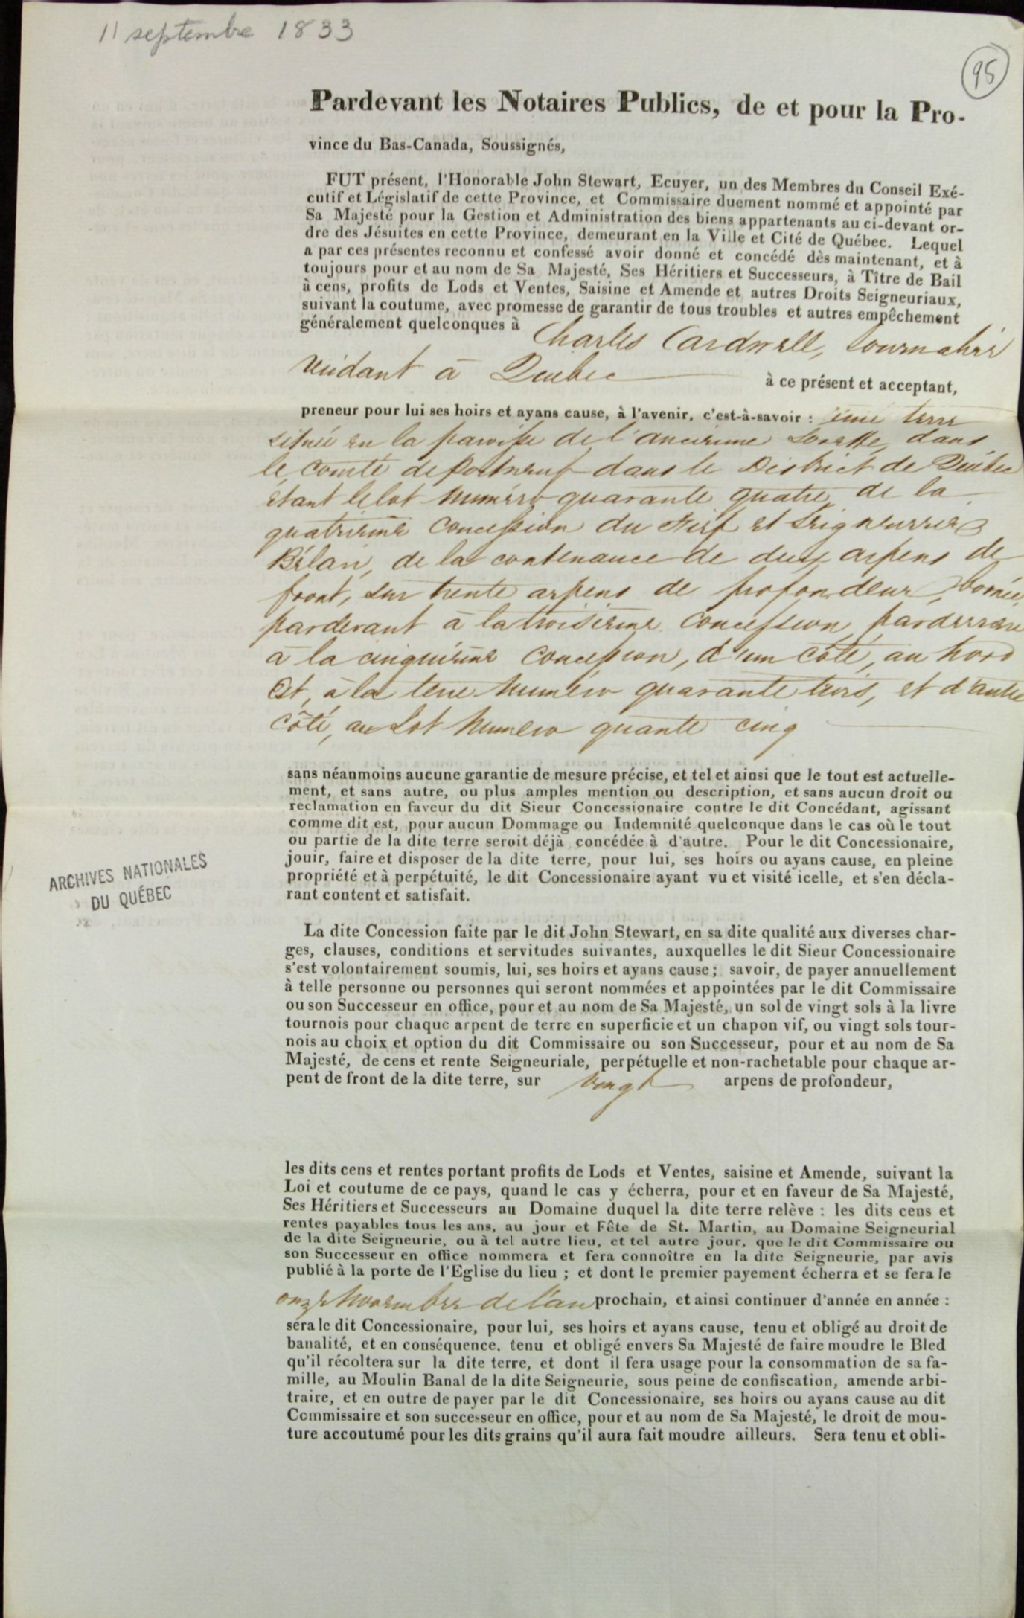 11 septembre 1833
95
Pardevant les Notaires Publics, de et pour la Pro-
vince du Bas-Canada, Soussignés,
FUT présent, l'Honorable John Stewart, Ecuyer, un des Membres du Conseil Exé-
cutif et Législatif de cette Province, et Commissaire duement nommé et appointé par
Sa Majesté pour la Gestion et Administration des biens appartenants au ci-devant or-
dre des Jésuites en cette Province, demeurant en la Ville et Cité de Québec. Lequel
a par ces présentes reconnu et confessé avoir donné et concédé dès maintenant, et à
toujours pour et au nom de Sa Majesté, Ses Héritiers et Successeurs, à Titre de Bail
à cens, profits de Lods et Ventes, Saisine et Amende et autres Droits Seigneuriaux,
suivant la coutume, avec promesse de garantir de tous troubles et autres empêchement
généralement quelconques à Charles Cardwell, Journalier
résidant à Quebec à ce présent et acceptant,
preneur pour lui ses hoirs et ayans cause, à l'avenir, c'est-à-savoir : une terre
située en la paroisse de l'ancienne Lorette, dans
le comté de Portneuf dans le District de Québec
étant le lot numéro quarante quatre de la
quatrieme concession du Fief et Seigneurie
Bélair, de la contenance de deux arpens de
front, sur trente arpens de profondeur, bornée
pardevant à la troisieme concession, parderriere
à la cinquième concession, d'un côté, au nord
Est, à la terre numéro quarante trois, et d'autre
côté, au Lot numéro quante cinq
sans néanmoins aucune garantie de mesure précise, et tel et ainsi que le tout est actuelle-
ment, et sans autre, ou plus amples mention ou description, et sans aucun droit ou
reclamation en faveur du dit Sieur Concessionaire contre le dit Concédant, agissant
comme dit est, pour aucun Dommage ou Indemnité quelconque dans le cas où le tout
ou partie de la dite terre seroit déjà concédée à d'autre. Pour le dit Concessionaire,
jouir, faire et disposer de la dite terre, pour lui, ses hoirs ou ayans cause, en pleine
propriété et à perpétuité, le dit Concessionaire ayant vu et visité icelle, et s'en décla-
rant content et satisfait.
ARCHIVES NATIONALES
DU QUÉBEC
La dite Concession faite par le dit John Stewart, en sa dite qualité aux diverses char-
ges, clauses, conditions et servitudes suivantes, auxquelles le dit Sieur Concessionaire
s'est volontairement soumis, lui, ses hoirs et ayans cause ; savoir, de payer annuellement
à telle personne ou personnes qui seront nommées et appointées par le dit Commissaire
ou son Successeur en office, pour et au nom de Sa Majesté, un sol de vingt sols à la livre
tournois pour chaque arpent de terre en superficie et un chapon vif, ou vingt sols tour-
nois au choix et option du dit Commissaire ou son Successeur, pour et au nom de Sa
Majesté, de cens et rente Seigneuriale, perpétuelle et non-rachetable pour chaque ar-
pent de front de la dite terre, sur vingt arpens de profondeur,
les dits cens et rentes portant profits de Lods et Ventes, saisine et Amende, suivant la
Loi et coutume de ce pays, quand le cas y écherra, pour et en faveur de Sa Majesté,
Ses Héritiers et Successeurs au Domaine duquel la dite terre relève : les dits cens et
rentes payables tous les ans, au jour et Fête de St. Martin, au Domaine Seigneurial
de la dite Seigneurie, ou à tel autre lieu, et tel autre jour, que le dit Commissaire ou
son Successeur en office nommera et fera connoître en la dite Seigneurie, par avis
publié à la porte de l'Eglise du lieu ; et dont le premier payement écherra et se fera le
onze Novembre de l'an prochain, et ainsi continuer d'année en année :
sera le dit Concessionaire, pour lui, ses hoirs et ayans cause, tenu et obligé au droit de
banalité, et en conséquence, tenu et obligé envers Sa Majesté de faire moudre le Bled
qu'il récoltera sur la dite terre, et dont il fera usage pour la consommation de sa fa-
mille, au Moulin Banal de la dite Seigneurie, sous peine de confiscation, amende arbi-
traire, et en outre de payer par le dit Concessionaire, ses hoirs ou ayans cause au dit
Commissaire et son successeur en office, pour et au nom de Sa Majesté, le droit de mou-
ture accoutumé pour les dits grains qu'il aura fait moudre ailleurs. Sera tenu et obli-